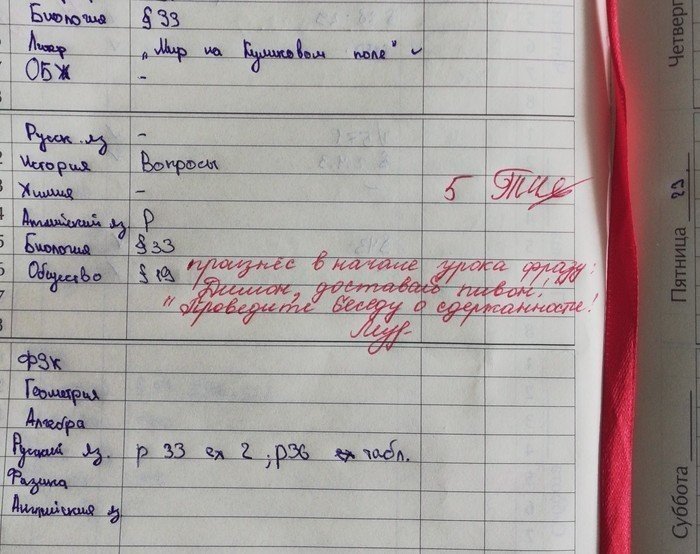 Биология § 33
Литер „Мир на Куликовом поле"
ОБЖ -
Русск. яз -
История Вопросы
Химия - 5
Английский яз Р
Биология § 33
Общество § 19 произнёс в начале урока фразу:
"Димон, доставай пивон!"
Проведите беседу о сдержанности!
ФЗК
Геометрия
Алгебра
Русский яз. р 33 ех 2 ; р36 ех табл.
Физика
Английский яз
Четверг
Пятница 29
Суббота